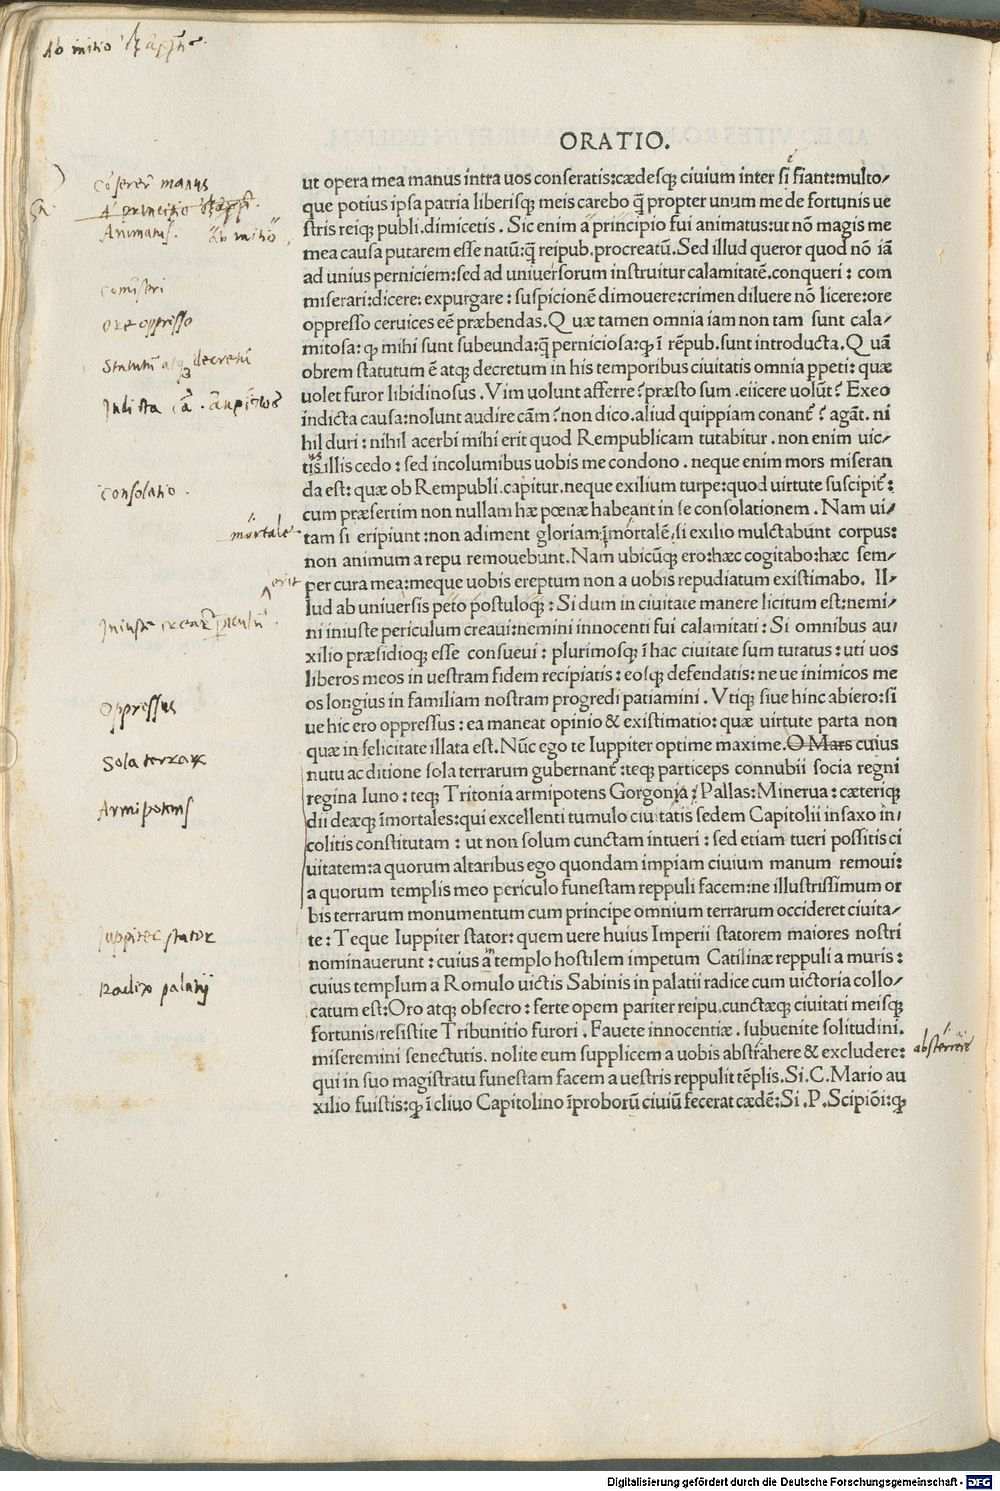 Ab initio
ORATIO.
Cōserere manus
A principio
Animatus.
ab initio
comiseri
ore oppresso
Statutū atq; decretū
Indicta cā.
Consolatio.
mortale
erit
Iniuste creare periculū
Oppressus
Sola terrarum
Armipotens
Iuppiter stator
Radix palatij
ut opera mea manus intra uos conseratis:cædesq; ciuium inter si fiant:multo/
que potius ipsa patria liberisq; meis carebo q̄ propter unum me de fortunis ue
stris reiq; publi.dimicetis. Sic enim a principio fui animatus:ut nō magis me
mea causa putarem esse natū:q̄ reipub.procreatū.Sed illud queror quod nō iā
ad unius perniciem:sed ad uniuersorum instruitur calamitatē.conqueri: com
miserari:dicere:expurgare: suspicionē dimouere:crimen diluere nō licere:ore
oppresso ceruices eē præbendas.Quæ tamen omnia iam non tam sunt cala/
mitosa: q; mihi sunt subeunda:q̄ perniciosa:q; ī rēpub.sunt introducta.Quā
obrem statutum ē atq; decretum in his temporibus ciuitatis omnia ꝑpeti: quæ
uolet furor libidinosus. Vim uolunt afferre? præsto sum.eiicere uolūt? Exeo
indicta causa:nolunt audire cām? non dico.aliud quippiam conant̄? agāt. ni
hil duri: nihil acerbi mihi erit quod Rempublicam tutabitur. non enim uic/
tis illis cedo: sed incolumibus uobis me condono. neque enim mors miseran
da est: quæ ob Rempubli.capitur.neque exilium turpe:quod uirtute suscipit̄:
cum præsertim non nullam hæ pœnæ habeant in se consolationem. Nam ui/
tam si eripiunt:non adiment gloriam īmortalē, si exilio mulctabunt corpus:
non animum a repu remouebunt.Nam ubicūq; ero:hæc cogitabo:hæc sem/
per cura mea:meque uobis ereptum non a uobis repudiatum existimabo. Il/
lud ab uniuersis peto postuloq;: Si dum in ciuitate manere licitum est:nemi/
ni iniuste periculum creaui:nemini innocenti fui calamitati: Si omnibus au/
xilio præsidioq; esse consueui: plurimosq; ī hac ciuitate sum tutatus: uti uos
liberos meos in uestram fidem recipiatis: eosq; defendatis: ne ue inimicos me
os longius in familiam nostram progredi patiamini. Vtiq; siue hinc abiero:si
ue hic ero oppressus: ea maneat opinio & existimatio: quæ uirtute parta non
quæ in felicitate illata est.Nūc ego te Iuppiter optime maxime.O Mars cuius
nutu ac ditione sola terrarum gubernant̄:teq; particeps connubii socia regni
regina Iuno: teq; Tritonia armipotens Gorgonia: Pallas:Minerua: cæteriq;
dii deæq; īmortales:qui excellenti tumulo ciuitatis sedem Capitolii in saxo in/
colitis constitutam: ut non solum cunctam intueri: sed etiam tueri possitis ci
uitatem:a quorum altaribus ego quondam impiam ciuium manum remoui:
a quorum templis meo periculo funestam reppuli facem:ne illustrissimum or
bis terrarum monumentum cum principe omnium terrarum occideret ciuita/
te: Teque Iuppiter stator: quem uere huius Imperii statorem maiores nostri
nominauerunt: cuius a templo hostilem impetum Catilinæ reppuli a muris:
cuius templum a Romulo uictis Sabinis in palatii radice cum uictoria collo/
catum est:Oro atq; obsecro: ferte opem pariter reipu.cunctæq; ciuitati meisq;
fortunis/resistite Tribunitio furori. Fauete innocentiæ. subuenite solitudini.
miseremini senectutis. nolite eum supplicem a uobis abstrahere & excludere:
qui in suo magistratu funestam facem a uestris reppulit tēplis.Si.C.Mario au
xilio fuistis:q; ī cliuo Capitolino īproborū ciuiū fecerat cædē:Si.P.Scipiōi:q;
absterrere
Digitalisierung gefördert durch die Deutsche Forschungsgemeinschaft - DFG